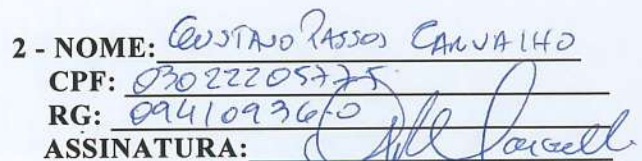 2 - NOME: GUSTAVO PASSOS CARVALHO
CPF: 03022205775
RG: 09410936-0
ASSINATURA: